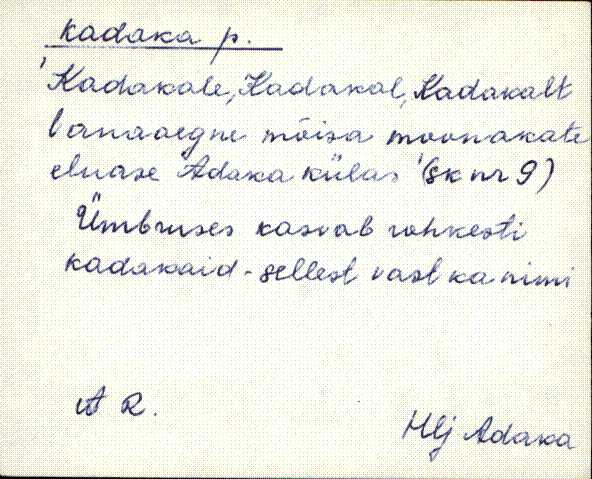 Kadaka p.
'Kadakale, Kadakal, Kadakalt
vanaaegne mõisa moonakate
eluase Adaka külas (sk nr 9)
Ümbruses kasvab rohkesti
kadakaid - sellest vast ka nimi
A R.
Hlj Adaka